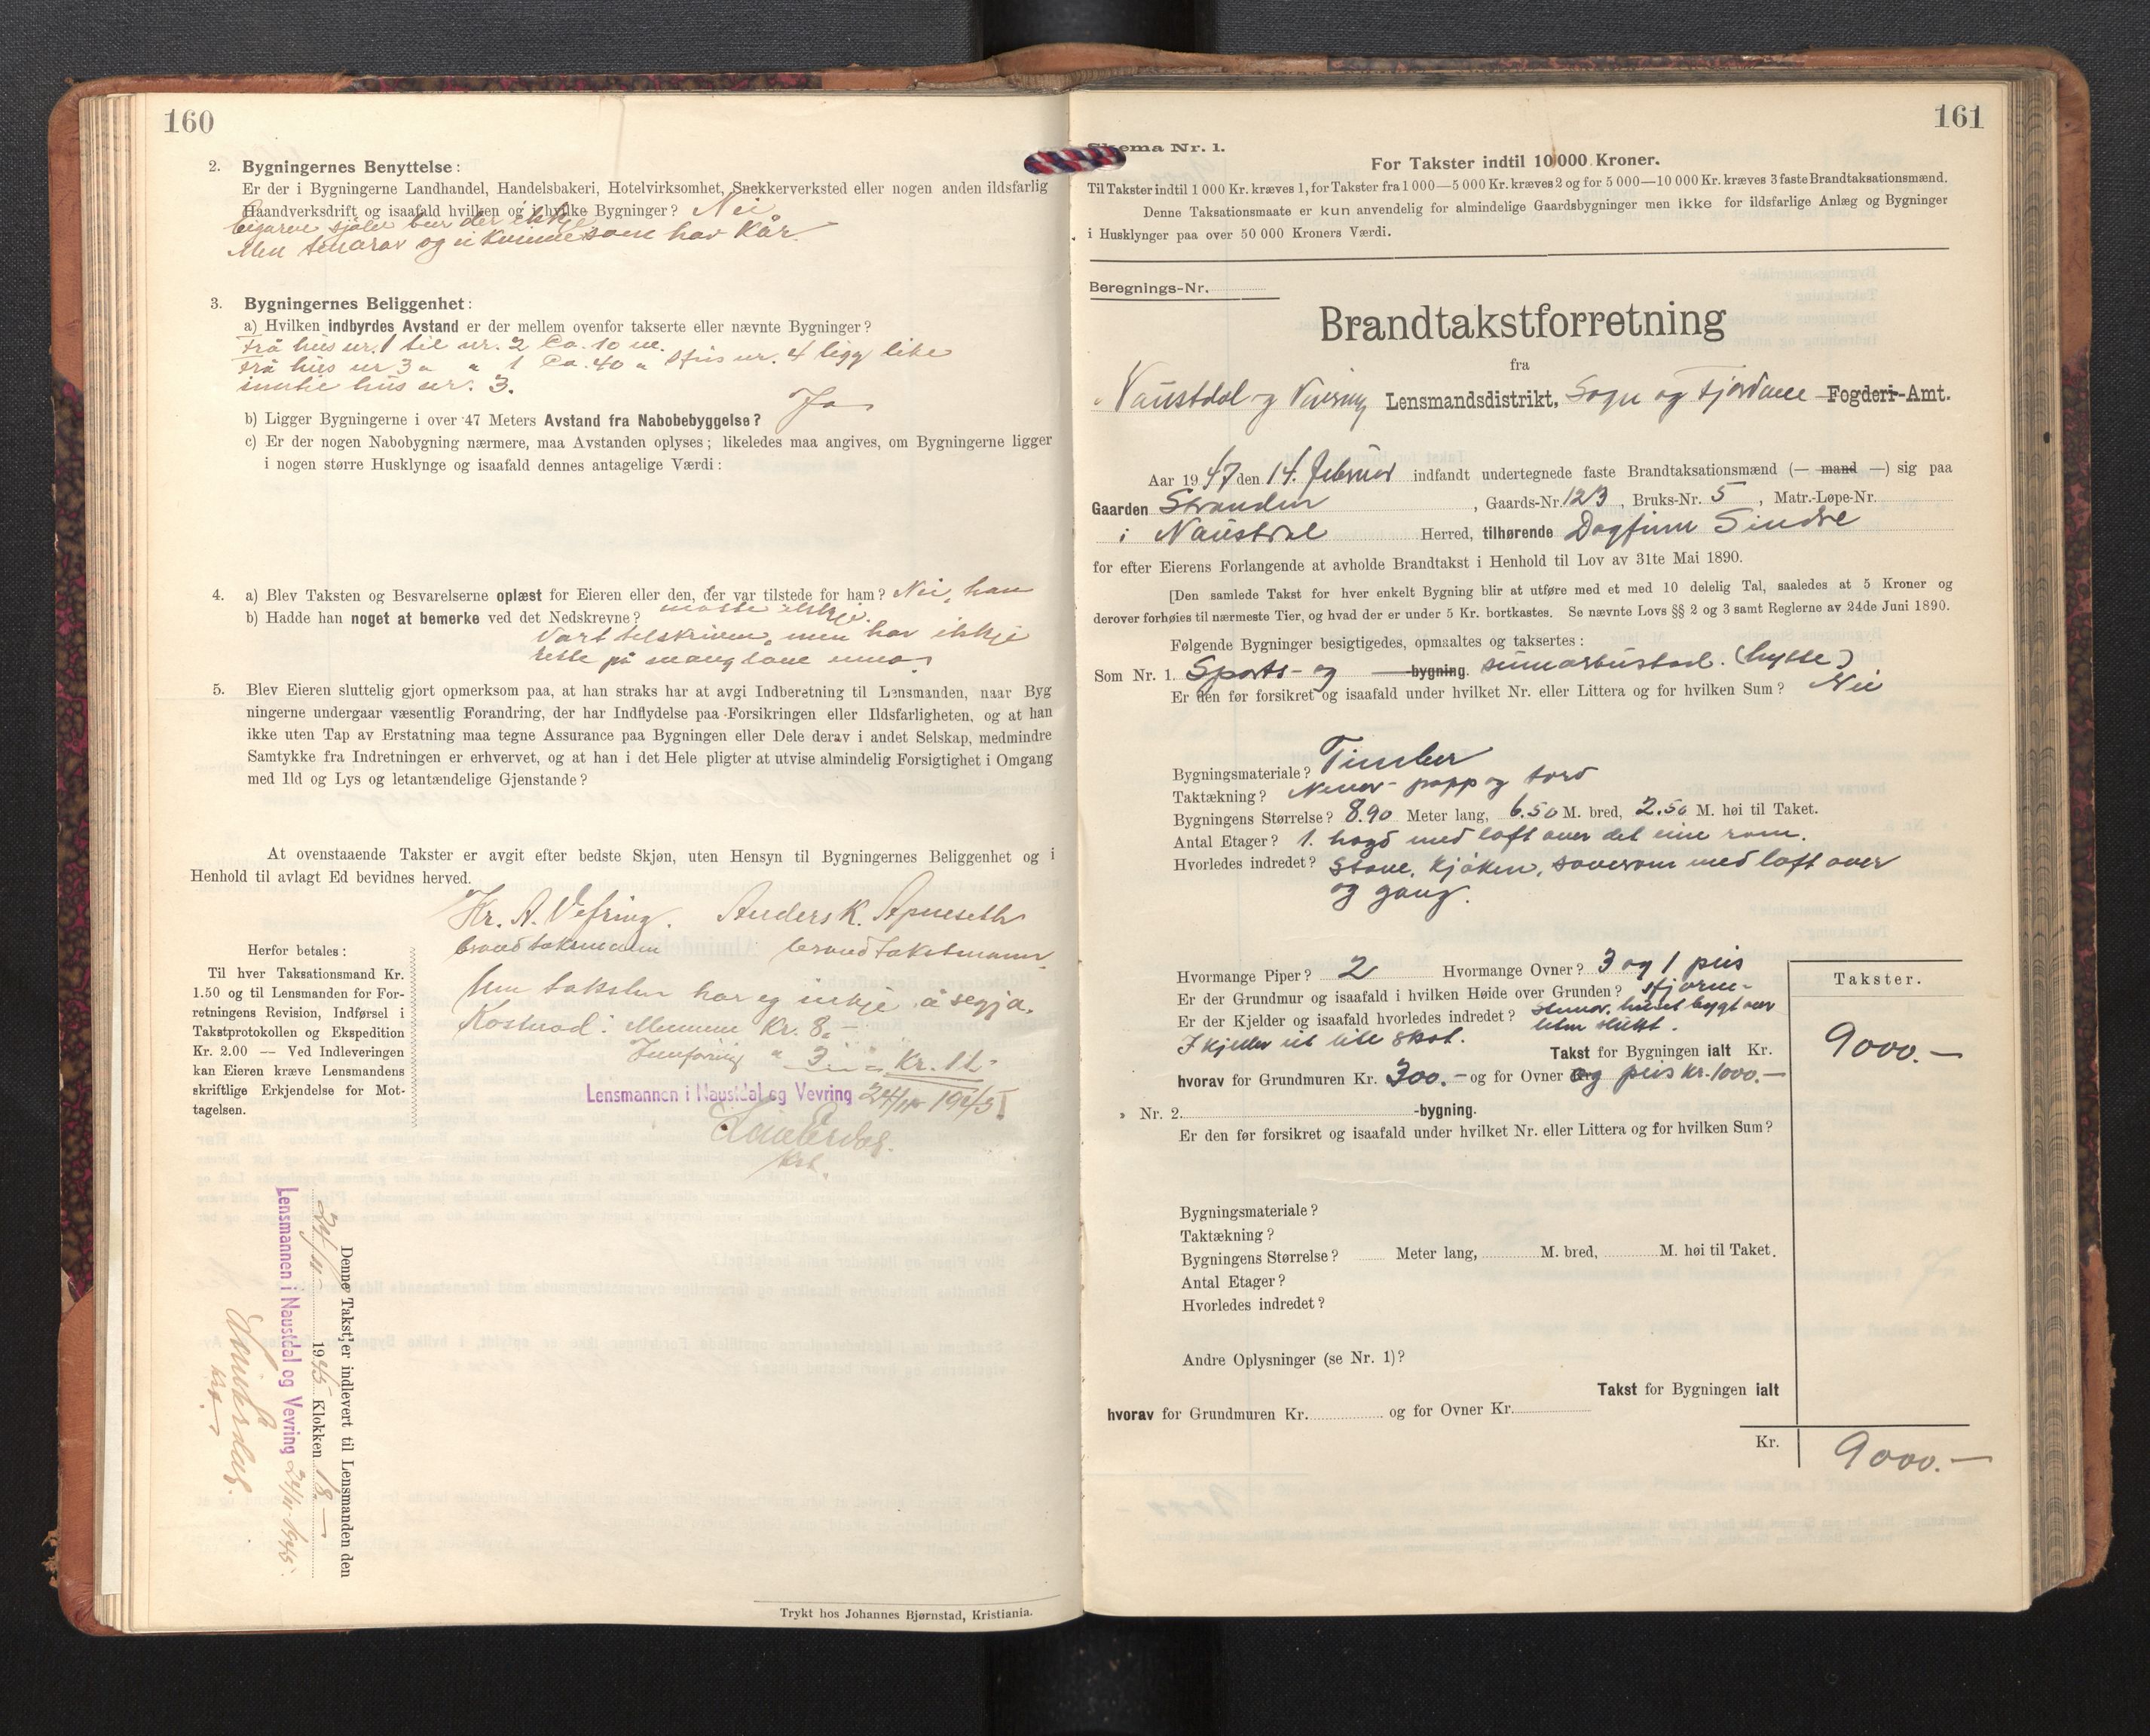 160
2. Bygningernes Benyttelse:
Er der i Bygningerne Landhandel, Handelsbakeri, Hotelvirksomhet, Snekkerverksted eller nogen anden ildsfarlig
Haandverksdrift og isaafald hvilken og i hvilke Bygninger? Nei
Eigaren sjølv bur der ikkje
Men tenarar og ei kvinne som har kår
3. Bygningernes Beliggenhet:
a) Hvilken indbyrdes Avstand er der mellem ovenfor takserte eller nævnte Bygninger?
Frå hus nr. 1 til nr. 2 Ca. 10 m.
Frå hus nr 3 " " 1 Ca. 40 " Hus nr. 4 ligg like
inntil hus nr. 3.
b) Ligger Bygningerne i over 47 Meters Avstand fra Nabobebyggelse? Ja
c) Er der nogen Nabobygning nærmere, maa Avstanden oplyses; likeledes maa angives, om Bygningerne ligger
i nogen større Husklynge og isaafald dennes antagelige Værdi:
4. a) Blev Taksten og Besvarelserne oplæst for Eieren eller den, der var tilstede for ham? Nei, han
møtte ikkje.
b) Hadde han noget at bemerke ved det Nedskrevne?
Vart tilskriven, men har ikkje
rette på
5. Blev Eieren sluttelig gjort opmerksom paa, at han straks har at avgi Indberetning til Lensmanden, naar Byg
ningerne undergaar væsentlig Forandring, der har Indflydelse paa Forsikringen eller Ildsfarligheten, og at han
ikke uten Tap av Erstatning maa tegne Assurance paa Bygningen eller Dele derav i andet Selskap, medmindre
Samtykke fra Indretningen er erhvervet, og at han i det Hele pligter at utvise almindelig Forsigtighet i Omgang
med Ild og Lys og letantændelige Gjenstande?
At ovenstaaende Takster er avgit efter bedste Skjøn, uten Hensyn til Bygningernes Beliggenhet og i
Henhold til avlagt Ed bevidnes herved.
Kr. A. Vefring. Anders K. Apneseth
brandtakstmann brandtakstmann
Herfor betales:
Til hver Taksationsmand Kr.
1.50 og til Lensmanden for For-
retningens Revision, Indførsel i
Takstprotokollen og Ekspedition
Kr. 2.00 — Ved Indleveringen
kan Eieren kræve Lensmandens
skriftlige Erkjendelse for Mot-
tagelsen.
Um taksten har eg inkje å segja.
Kostnad: Mennene Kr. 8,-
Innføring " 3 Kr. 11-
Lensmannen i Naustdal og Vevring 24/11 1945
Denne Takst er indlevert til Lensmanden den
24/11 1945 Klokken 18 —
Lensmannen i Naustdal og Vevring 24/11 1945
Trykt hos Johannes Bjørnstad, Kristiania.
161
Skema Nr. 1.
For Takster indtil 10 000 Kroner.
Til Takster indtil 1 000 Kr. kræves 1, for Takster fra 1 000—5 000 Kr. kræves 2 og for 5 000—10 000 Kr. kræves 3 faste Brandtaksationsmænd.
Denne Taksationsmaate er kun anvendelig for almindelige Gaardsbygninger men ikke for ildsfarlige Anlæg og Bygninger
i Husklynger paa over 50 000 Kroners Værdi.
Beregnings-Nr.
Brandtakstforretning
fra
Naustdal og Vevring Lensmandsdistrikt, Sogn og Fjordane Fogderi-Amt.
Aar 1947 den 14. februar indfandt undertegnede faste Brandtaksationsmænd (— mand —) sig paa
Gaarden Stranden, Gaards-Nr. 123, Bruks-Nr. 5, Matr.-Løpe-Nr.
i Naustdal Herred, tilhørende Dagfinn Sindre
for efter Eierens Forlangende at avholde Brandtakst i Henhold til Lov av 31te Mai 1890.
[Den samlede Takst for hver enkelt Bygning blir at utføre med et med 10 delelig Tal, saaledes at 5 Kroner og
derover forhøies til nærmeste Tier, og hvad der er under 5 Kr. bortkastes. Se nævnte Lovs §§ 2 og 3 samt Reglerne av 24de Juni 1890.
Følgende Bygninger besigtigedes, opmaaltes og taksertes:
Som Nr. 1. Sports- og -bygning. sumarbustad. (hytte)
Er den før forsikret og isaafald under hvilket Nr. eller Littera og for hvilken Sum? Nei
Bygningsmateriale? Timber
Taktækning? Never- papp og torv
Bygningens Størrelse? 8.90 Meter lang, 6.50 M. bred, 2.50 M. høi til Taket.
Antal Etager? 1. høgd med loft over det eine rom.
Hvorledes indredet? Stove, kjøken, soverom med loft over
og gang.
Hvormange Piper? 2 Hvormange Ovner? 3 og 1 peis
Er der Grundmur og isaafald i hvilken Høide over Grunden? Hjørne-
Er der Kjelder og isaafald hvorledes indredet? steinar, huset bygt over
I kjeller eit lite skot.
Takst for Bygningen ialt Kr.
hvorav for Grundmuren Kr. 300.- og for Ovner og peis kr. 1000.—
Takster.
9000.—
Nr. 2. -bygning.
Er den før forsikret og isaafald under hvilket Nr. eller Littera og for hvilken Sum?
Bygningsmateriale?
Taktækning?
Bygningens Størrelse? Meter lang, M. bred, M. høi til Taket.
Antal Etager?
Hvorledes indredet?
Andre Oplysninger (se Nr. 1)?
Takst for Bygningen ialt
hvorav for Grundmuren Kr. og for Ovner Kr.
Kr. 9000.—